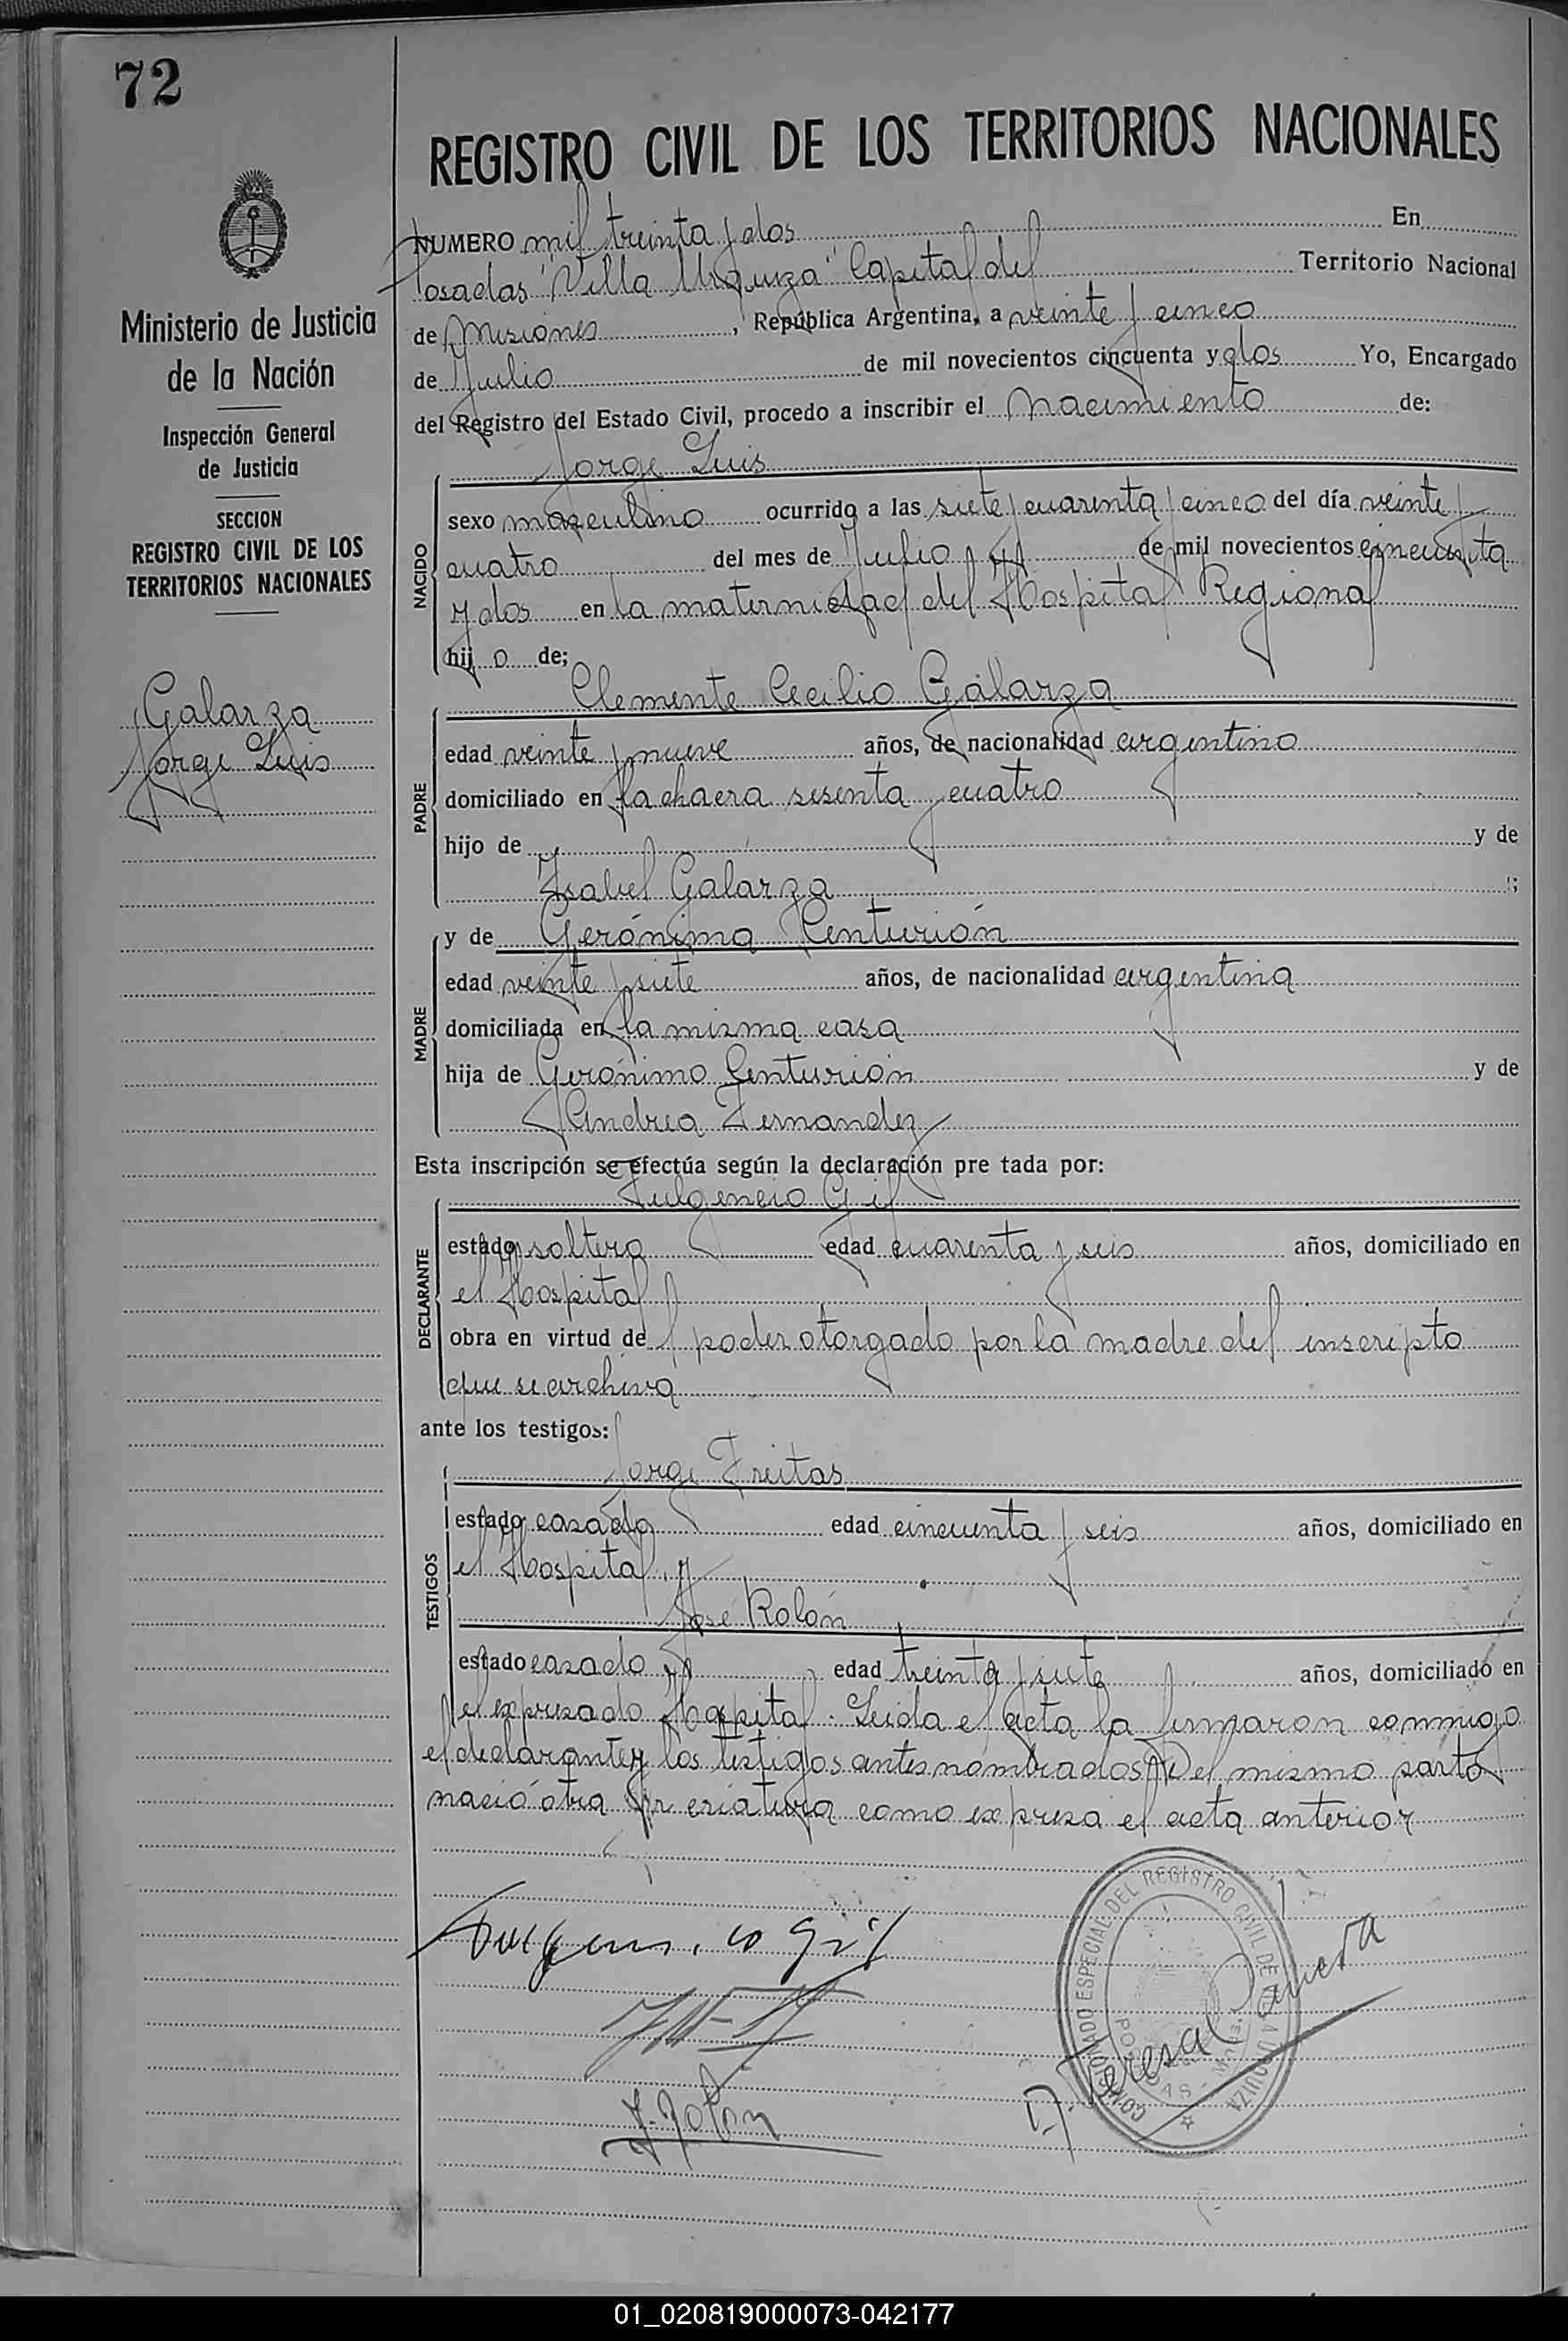 72
REGISTRO CIVIL DE LOS TERRITORIOS NACIONALES
Ministerio de Justicia
de la Nación
Inspección General
de Justicia
SECCION
REGISTRO CIVIL DE LOS
TERRITORIOS NACIONALES
Galarza
Jorge Luis
NUMERO mil treinta y dos En
Posadas "Villa Urquiza" Capital del Territorio Nacional
de Misiones, República Argentina, a veinte y cinco
de Julio de mil novecientos cincuenta y dos Yo, Encargado
del Registro del Estado Civil, procedo a inscribir el nacimiento de:
Jorge Luis
NACIDO
sexo masculino ocurrido a las siete y cuarenta y cinco del día veinte y
cuatro del mes de Julio de mil novecientos cincuenta
y dos en la maternidad del Hospital Regional
hij o de;
Clemente Cecilio Galarza
PADRE
edad veinte y nueve años, de nacionalidad argentino
domiciliado en la chacra sesenta y cuatro
hijo de y de
Isabel Galarza ;
y de Gerónima Centurión
MADRE
edad veinte y siete años, de nacionalidad argentina
domiciliada en la misma casa
hija de Gerónimo Centurión y de
Andrea Fernandez
Esta inscripción se efectúa según la declaración pre tada por:
Fulgencio Gil
DECLARANTE
estado soltero edad cuarenta y seis años, domiciliado en
el Hospital
obra en virtud de poder otorgado por la madre del inscripto
que se archiva
ante los testigos:
Jorge Freitas
TESTIGOS
estado casado edad cincuenta y seis años, domiciliado en
el Hospital y
José Rolón
estado casado edad treinta y siete años, domiciliado en
el expresado Hospital. Leida el acta la firmaron conmigo
el declarante y los testigos antes nombrados Del mismo parto
nació otra criatura como expresa el acta anterior
Fulgencio Gil
J. Rolon
COMISIONADO ESPECIAL DEL REGISTRO CIVIL DE VILLA URQUIZA
D. Teresa
01_020819000073-042177